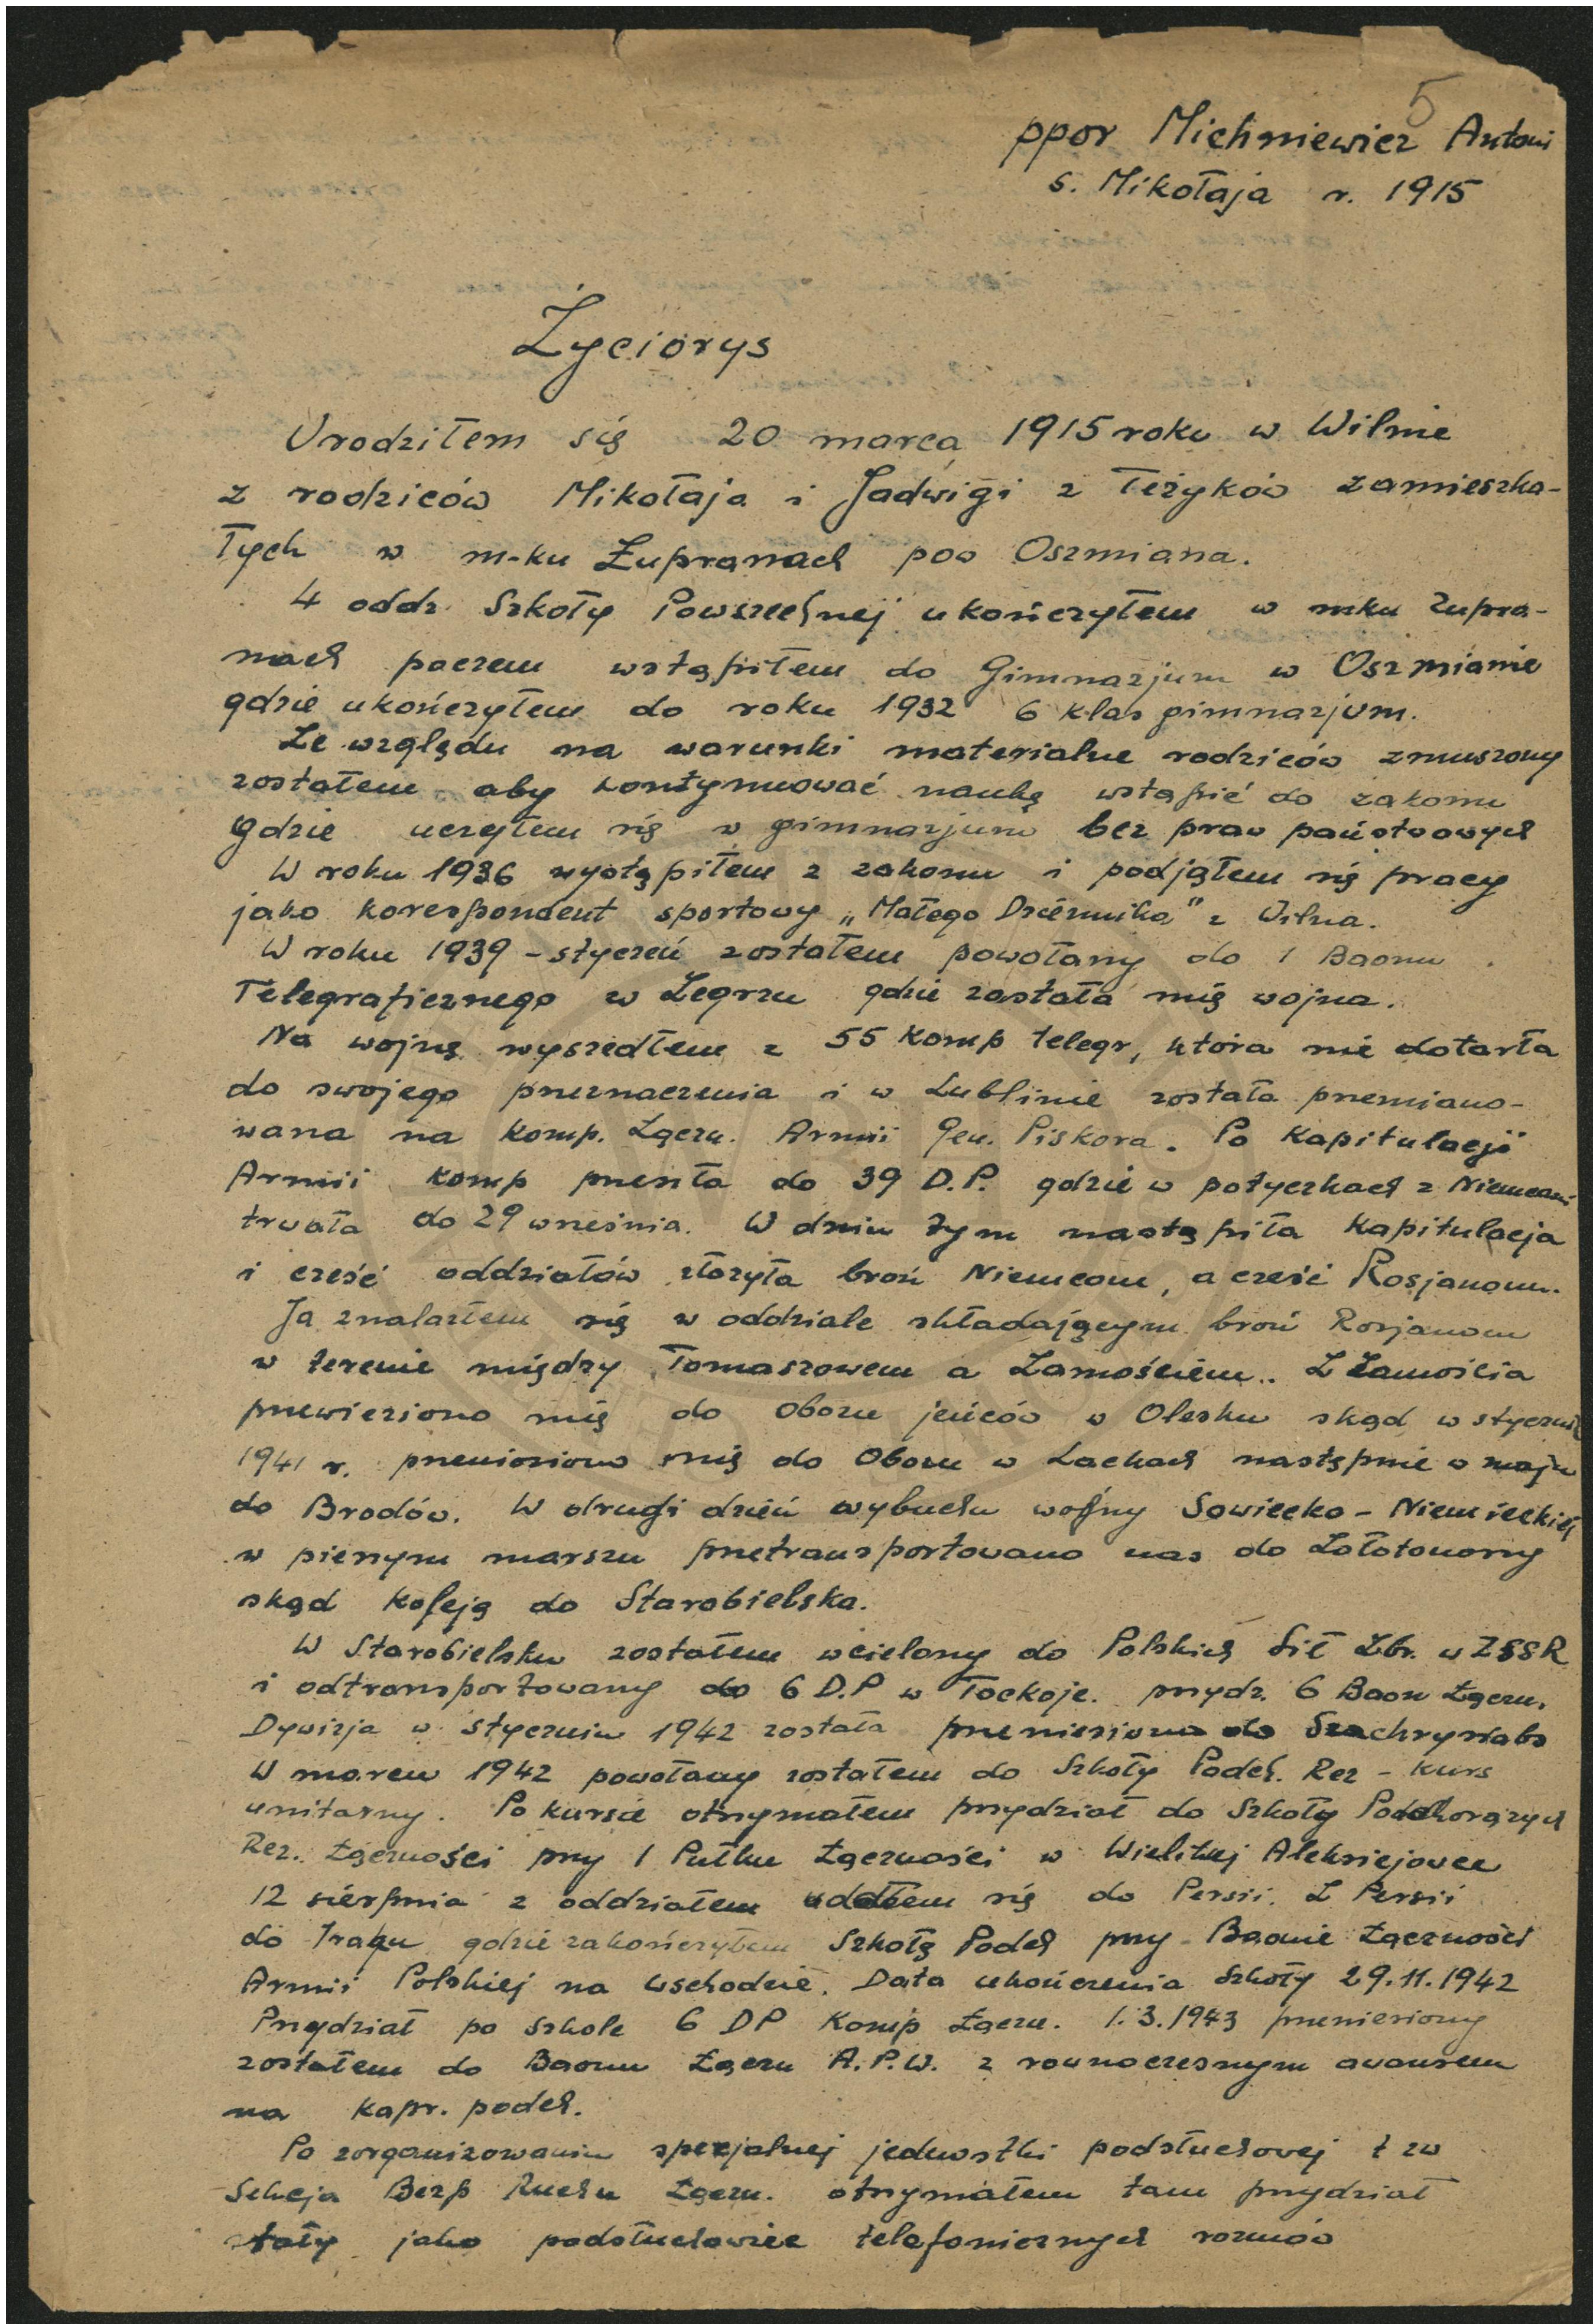 5
ppor Michniewicz Antoni
s. Mikołaja r. 1915
Życiorys
Urodziłem się 20 marca 1915 roku w Wilnie
z rodziców Mikołaja i Jadwigi z Teżyków zamieszka-
łych w m-ku Żupranach pow Oszmiana.
4 oddz. Szkoły Powszechnej ukończyłem w mku Żupra-
nach poczem wstąpiłem do Gimnazjum w Oszmianie
gdzie ukończyłem do roku 1932 6 klas gimnazjum.
Ze względu na warunki materialne rodziców zmuszony
zostałem aby kontynuować naukę wstąpić do zakonu
gdzie uczyłem się w gimnazjum bez praw państwowych
W roku 1936 wystąpiłem z zakonu i podjąłem się pracy
jako korespondent sportowy „Małego Dziennika" z Wilna.
W roku 1939 - styczeń zostałem powołany do 1 Baonu
Telegraficznego w Zegrzu gdzie zastała mię wojna.
Na wojnę wyszedłem z 55 komp telegr, która nie dotarła
do swojego przeznaczenia i w Lublinie została przemiano-
wana na Komp. Łączn. Armii Gen. Piskora. Po Kapitulacji
Armii komp przeszła do 39 D.P. gdzie w potyczkach z Niemcami
trwała do 29 września. W dniu tym nastąpiła Kapitulacja
i cześć oddziałów złożyła broń Niemcom, a cześć Rosjanom.
Ja znalazłem się w oddziale składającym broń Rosjanom
w terenie między Tomaszowem a Zamościem.. Z Zamościa
przewieziono mię do Obozu jeńców w Olesku skąd w styczniu
1941 r. przeniesiono mię do Obozu w Lackach następnie w maju
do Brodów. W drugi dzień wybuchu wojny Sowiecko - Niemieckiej
w pieszym marszu przetransportowano nas do Zołotonoszy
skąd koleją do Starobielska.
W Starobielsku zostałem wcielony do Polskich Sił Zbr. w ZSSR
i odtransportowany do 6 D.P w Tockoje. przydz. 6 Baon Łączn.
Dywizja w styczniu 1942 została przeniesiona do Szachrysiabs
W marcu 1942 powołany zostałem do Szkoły Podch. Rez - kurs
unitarny. Po kursie otrzymałem przydział do Szkoły Podchorążych
Rez. Łączności przy 1 Pułku Łączności w Wielikiej Aleksiejowce
12 sierpnia z oddziałem udałem się do Persii. Z Persii
do Iraku gdzie zakończyłem Szkołę Podch przy Baonie Łączności
Armii Polskiej na Wschodzie. Data ukończenia Szkoły 29.11.1942
Przydział po szkole 6 DP Komp Łączn. 1.3.1943 przeniesiony
zostałem do Baonu Łączn A.P.W. z równoczesnym awansem
na kapr. podch.
Po zorganizowaniu specjalnej jednostki podsłuchowej t zw
Sekcja Bezp Ruchu Łączn. otrzymałem tam przydział
stały jako podsłuchowiec telefonicznych rozmów